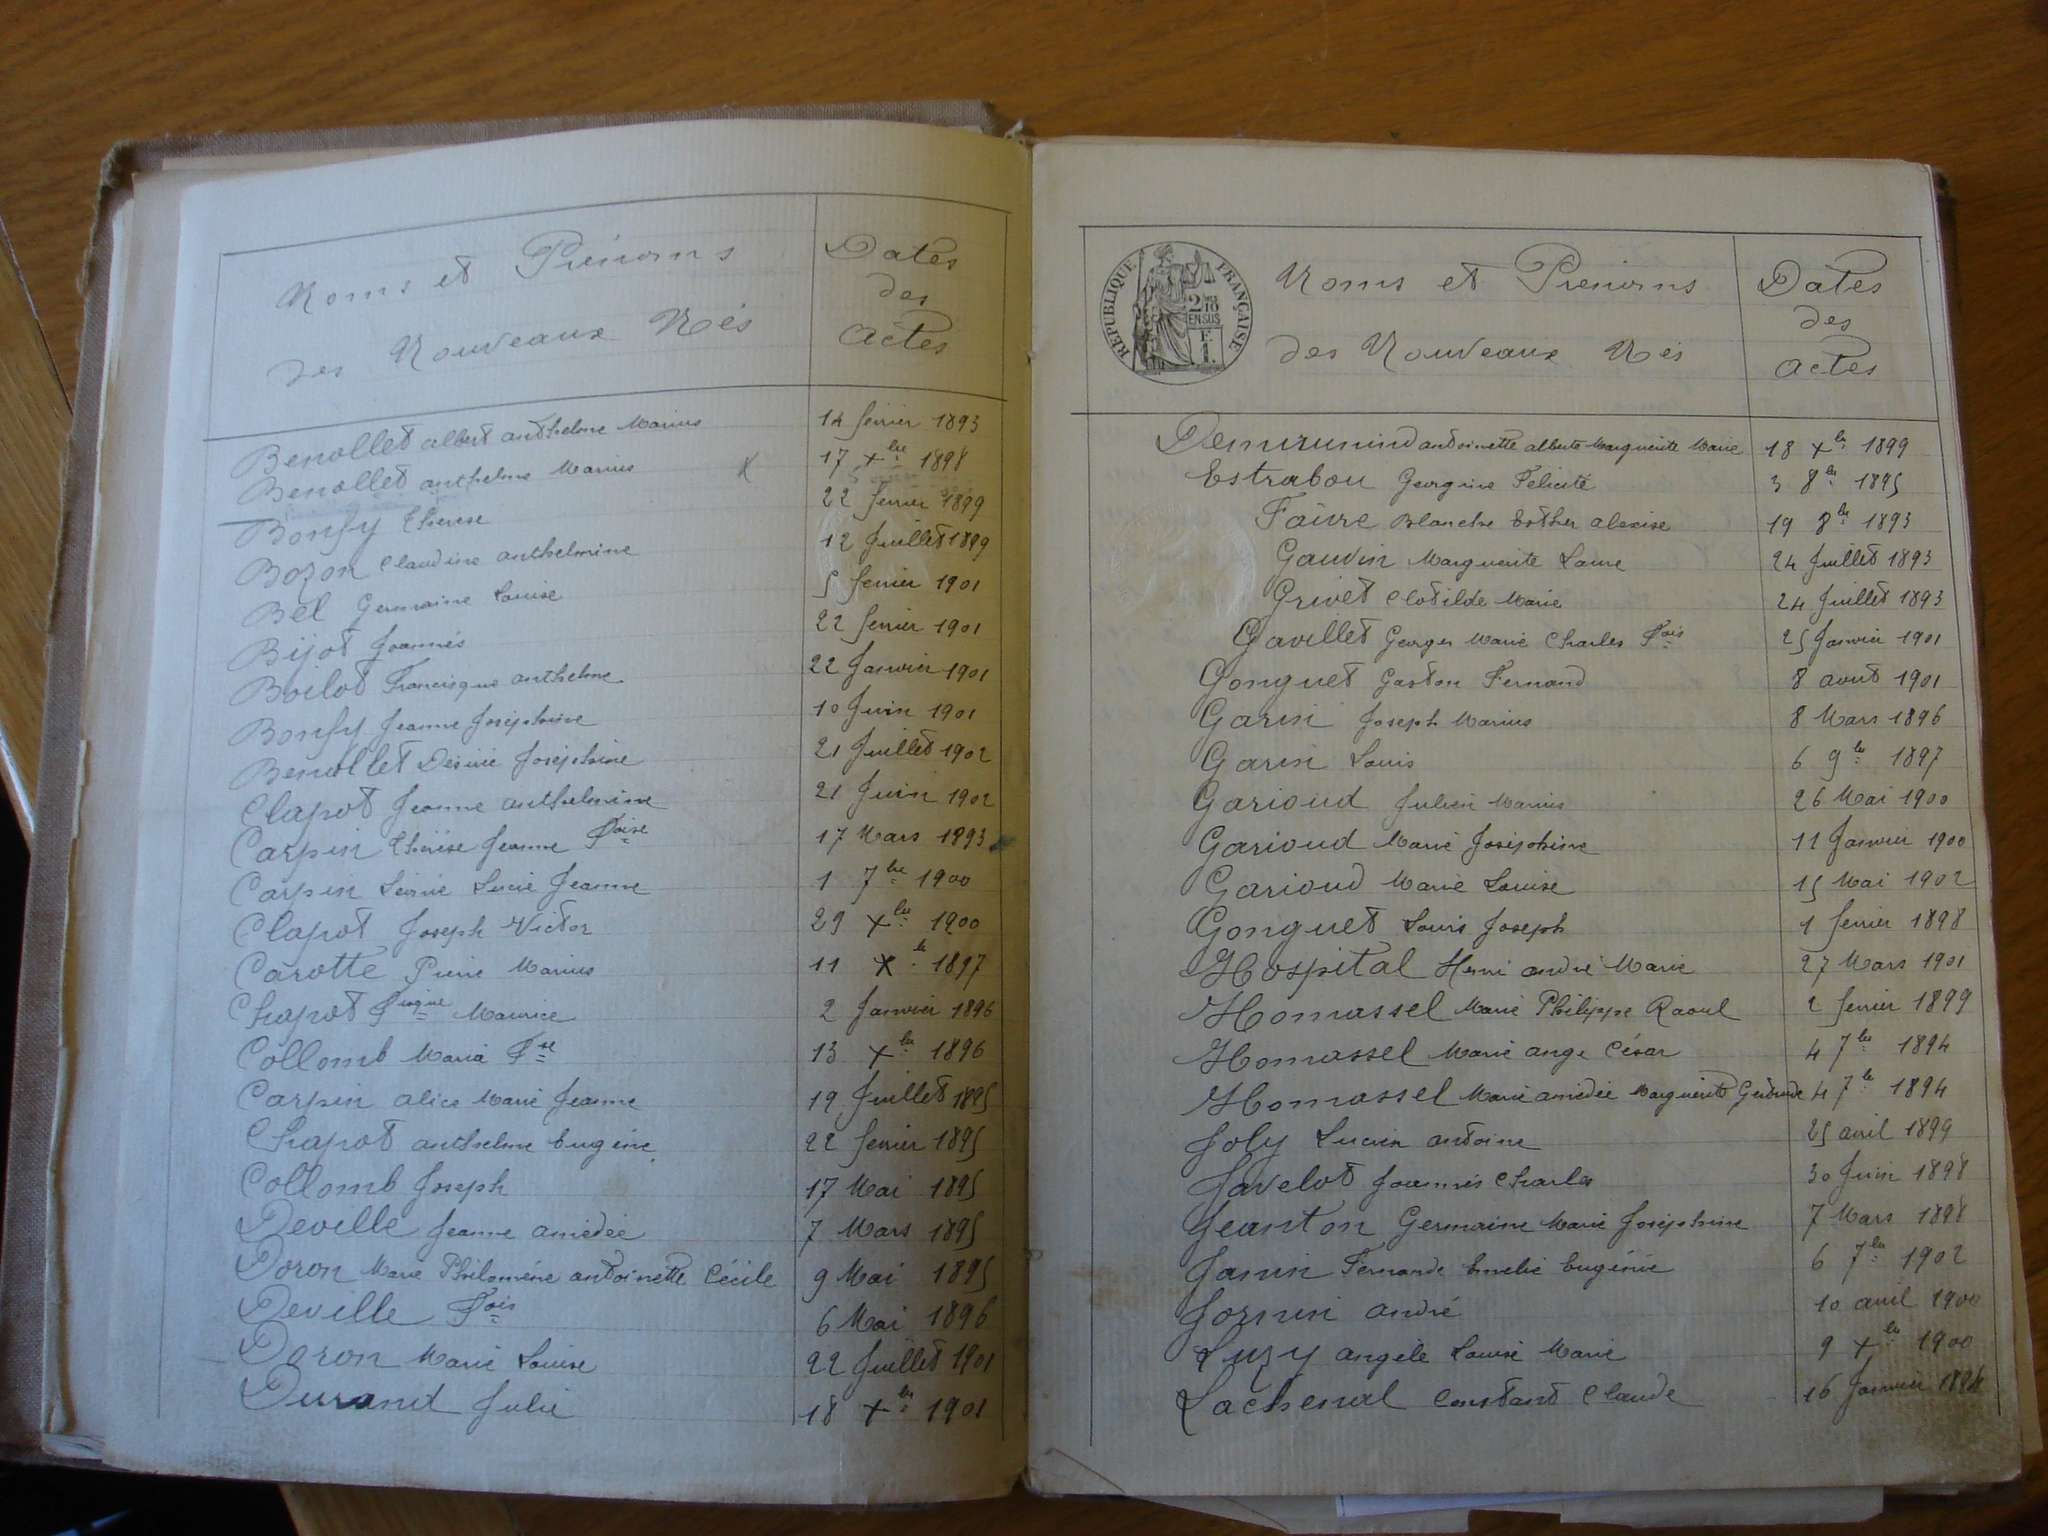 Noms et Prénoms
des Nouveaux Nés
Dates
des
Actes
Benollet albert anthelme Marius 14 février 1893
Benollet anthelme Marius x 17 Xbre 1898
Bonfy Thérèse 22 février 1899
Bozon Claudine anthelmine 12 Juillet 1899
Bel Germaine Louise 5 fevrier 1901
Bijot Joannès 22 fevrier 1901
Boilot Francisque anthelme 22 Janvier 1901
Bonfy Jeanne Joséphine 10 Juin 1901
Benollet Désiré Joséphine 21 Juillet 1902
Clapot Jeanne anthelmine 21 Juin 1902
Carpin Thérèse Jeanne Foise 17 Mars 1893
Carpin Lucie Jeanne 1 7bre 1900
Clapot Joseph Victor 29 Xbre 1900
Carotte Pierre Marius 11 Xbre 1897
Chapot Maurice 2 Janvier 1896
Collomb Maria 13 Xbre 1896
Carpin alice Marie Jeanne 19 Juillet 1895
Chapot anthelme Eugène 22 fevrier 1895
Collomb Joseph 17 Mai 1895
Deville Jeanne amédée 7 Mars 1895
Doron Marie Philomène antoinette Cécile 9 Mai 1895
Deville Fois 6 Mai 1896
Doron Marie Louise 22 Juillet 1901
Durand Julie 18 Xbre 1901
RÉPUBLIQUE FRANÇAISE
2/10
EN SUS
F.
1.
Noms et Prénoms
des Nouveaux Nés
Dates
des
Actes
antoinette alberte Marguerite Marie 18 Xbre 1899
Estrabou Georgine Félicité 3 8bre 1895
Faivre Blanche Esther alexise 19 8bre 1893
Gauvin Marguerite Laure 24 Juillet 1893
Grivet Clotilde Marie 24 Juillet 1893
Gavillet Georges Marie Charles Fois 25 Janvier 1901
Gonguet Gaston Fernand 8 aout 1901
Garin Joseph Marius 8 Mars 1896
Garin Louis 6 9bre 1897
Garioud Julien Marius 26 Mai 1900
Garioud Marie Joséphine 11 Janvier 1900
Garioud Marie Louise 15 Mai 1902
Gonguet Louis Joseph 1 fevrier 1898
Hospital Henri andré Marie 27 Mars 1901
Homassel Marie Philippe Raoul 2 fevrier 1899
Homassel Marie ange César 4 7bre 1894
Homassel Marie amédée Marguerite Gertrude 4 7bre 1894
Joly Lucien antoine 25 avril 1899
Javelot Joannès Charles 30 Juin 1898
Jeanton Germaine Marie Joséphine 7 Mars 1898
Janin Fernande Emelie Eugénie 6 7bre 1902
Jornin andré 10 avril 1900
Luzy angèle Louise Marie 9 Xbre 1900
Lachenal Constant Claude 16 Janvier